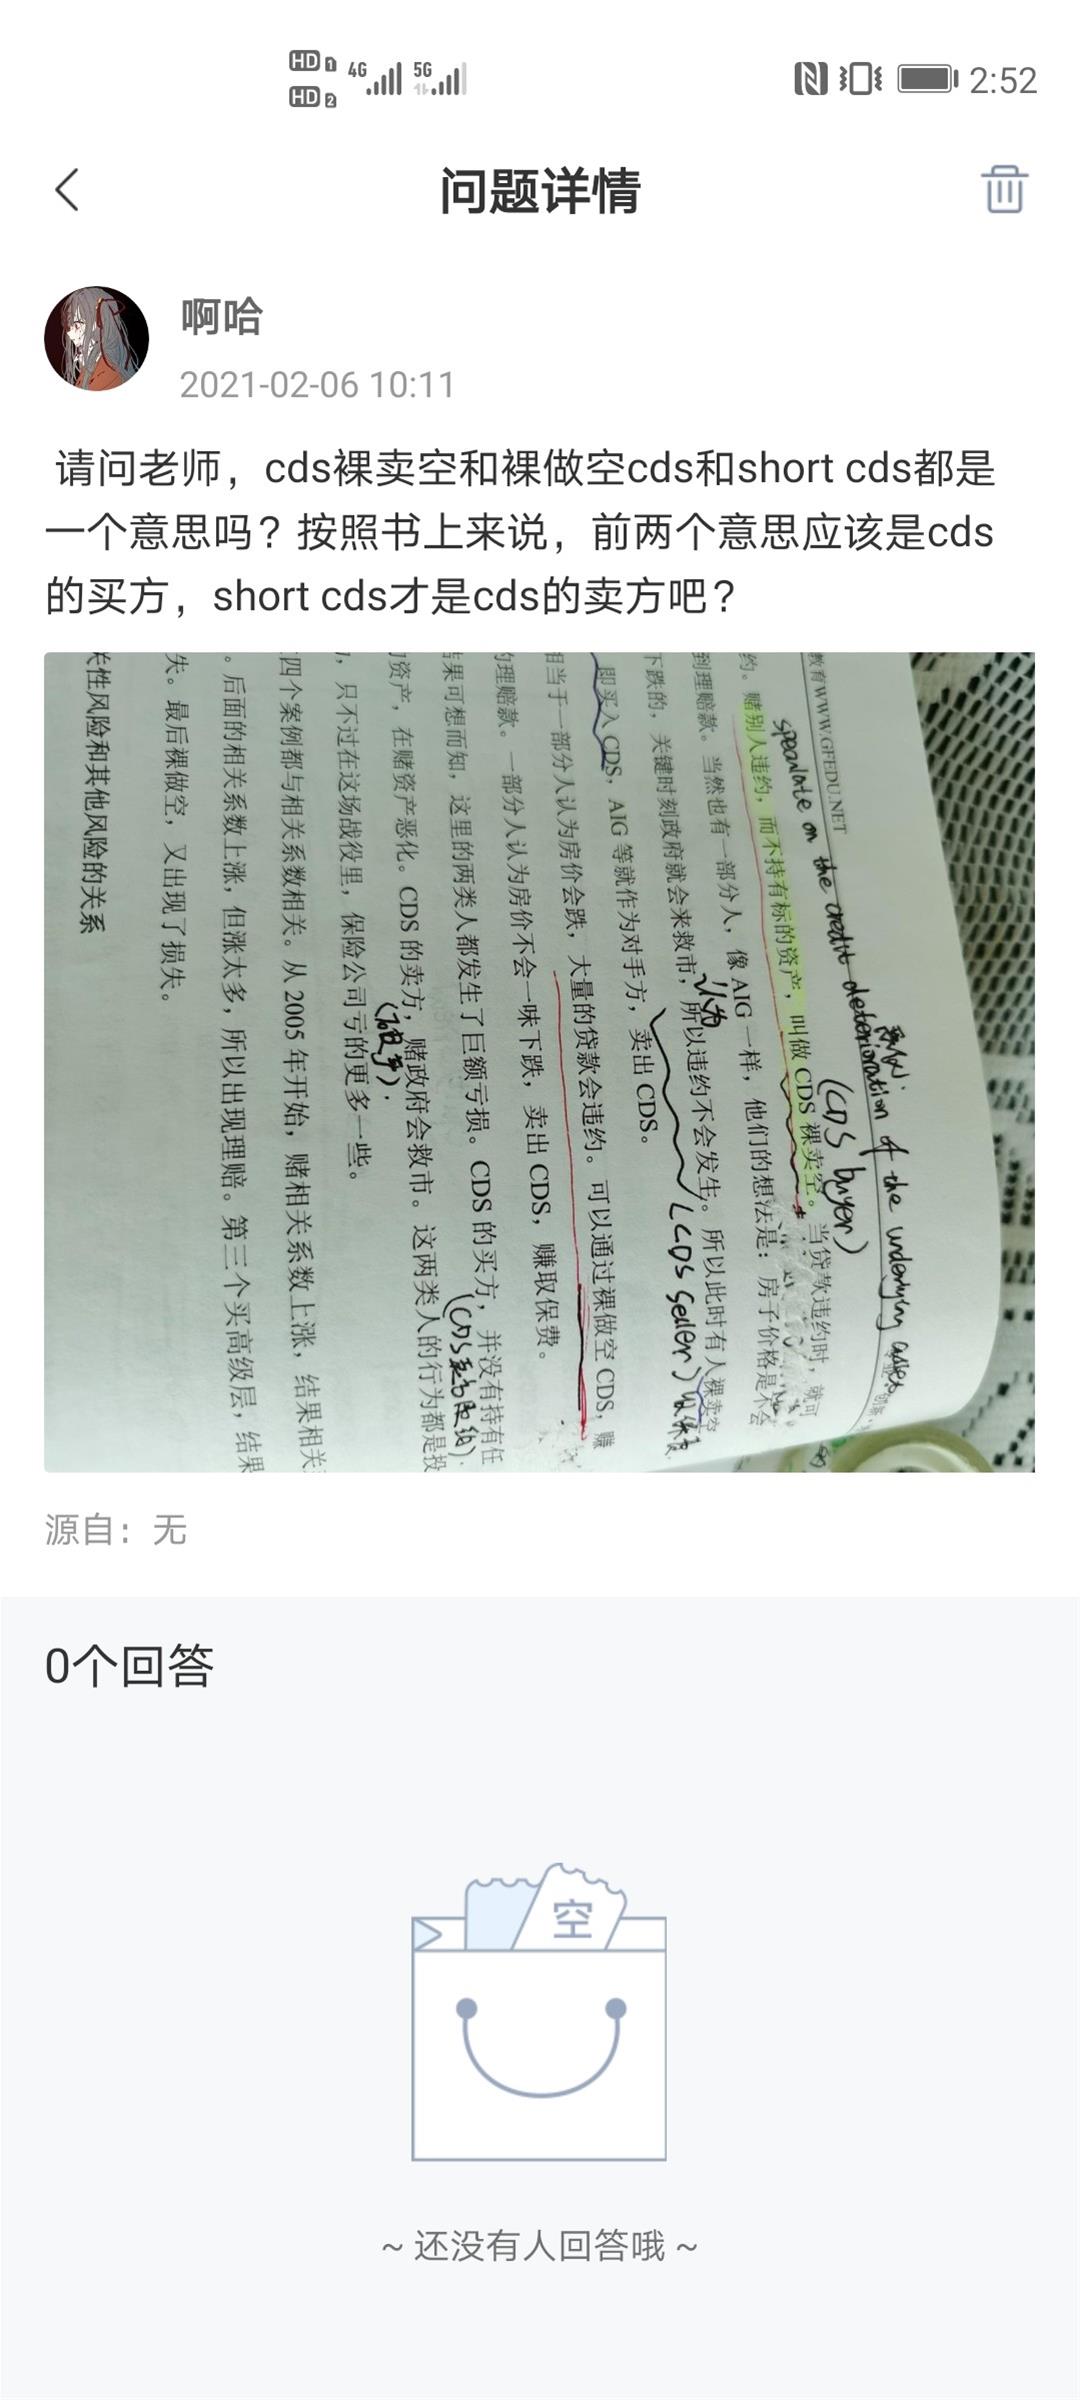 HD 1 4G 5G
HD 2
2:52
问题详情
啊哈
2021-02-06 10:11
请问老师，cds裸卖空和裸做空cds和short cds都是
一个意思吗？按照书上来说，前两个意思应该是cds
的买方，short cds才是cds的卖方吧？
教育WWW.GFEDU.NET
speculate on the credit deterioration of the underlying asset
(CDS buyer)
约。赌别人违约，而不持有标的资产，叫做 CDS 裸卖空。当贷款违约时，就可
到理赔款。当然也有一部分人，像 AIG 一样，他们的想法是：房子价格是不会
认为
下跌的，关键时刻政府就会来救市，所以违约不会发生。所以此时有人裸卖空
(CDS seller)
即买入 CDS，AIG 等就作为对手方，卖出 CDS。
相当于一部分人认为房价会跌，大量的贷款会违约。可以通过裸做空 CDS，赚
的理赔款。一部分人认为房价不会一味下跌，卖出 CDS，赚取保费。
结果可想而知，这里的两类人都发生了巨额亏损。CDS 的买方，并没有持有任
的资产，在赌资产恶化。CDS 的卖方，赌政府会救市。这两类人的行为都是投
，只不过在这场战役里，保险公司亏的更多一些。
四个案例都与相关系数相关。从 2005 年开始，赌相关系数上涨，结果相关
。后面的相关系数上涨，但涨太多，所以出现理赔。第三个买高级层，结果
失。最后裸做空，又出现了损失。
关性风险和其他风险的关系
源自：无
0个回答
空
~ 还没有人回答哦 ~